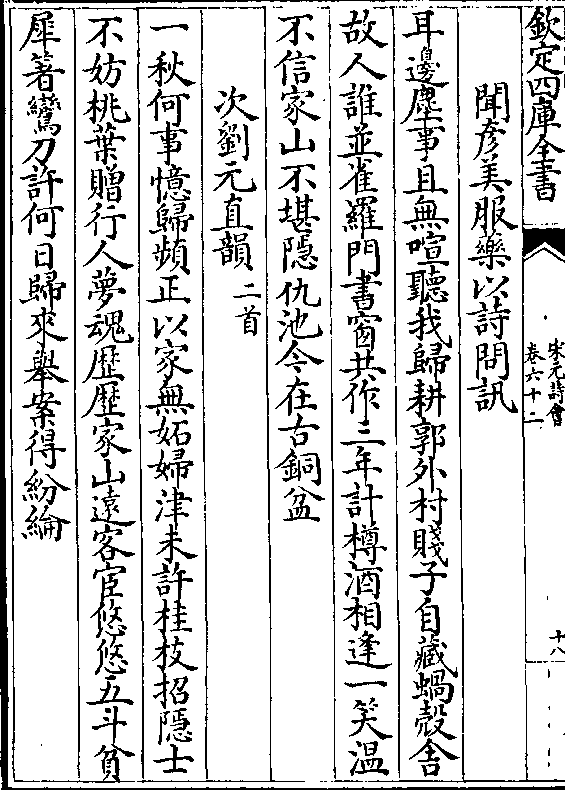 欽定四庫全書
宋元詩會
卷六十二
十八
聞彦美服藥以詩問訊
耳邊塵事且無喧聽我歸耕郭外村賤子自藏蝸殻舍
故人誰並雀羅門書窗共作三年計樽酒相逢一笑温
不信家山不堪隱仇池今在古銅盆
次劉元直韻二首
一秋何事憶歸頻正以家無妬婦津未許桂枝招隱士
不妨桃葉贈行人夢魂歴歴家山遠客宦悠悠五斗貧
犀箸鸞刀許何日歸來舉案得紛綸